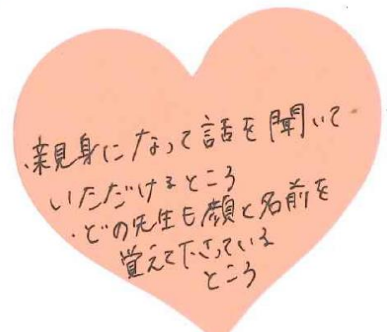 ・親身になって話を聞いて
いただけるところ
・どの先生も顔と名前を
覚えて下さっている
ところ